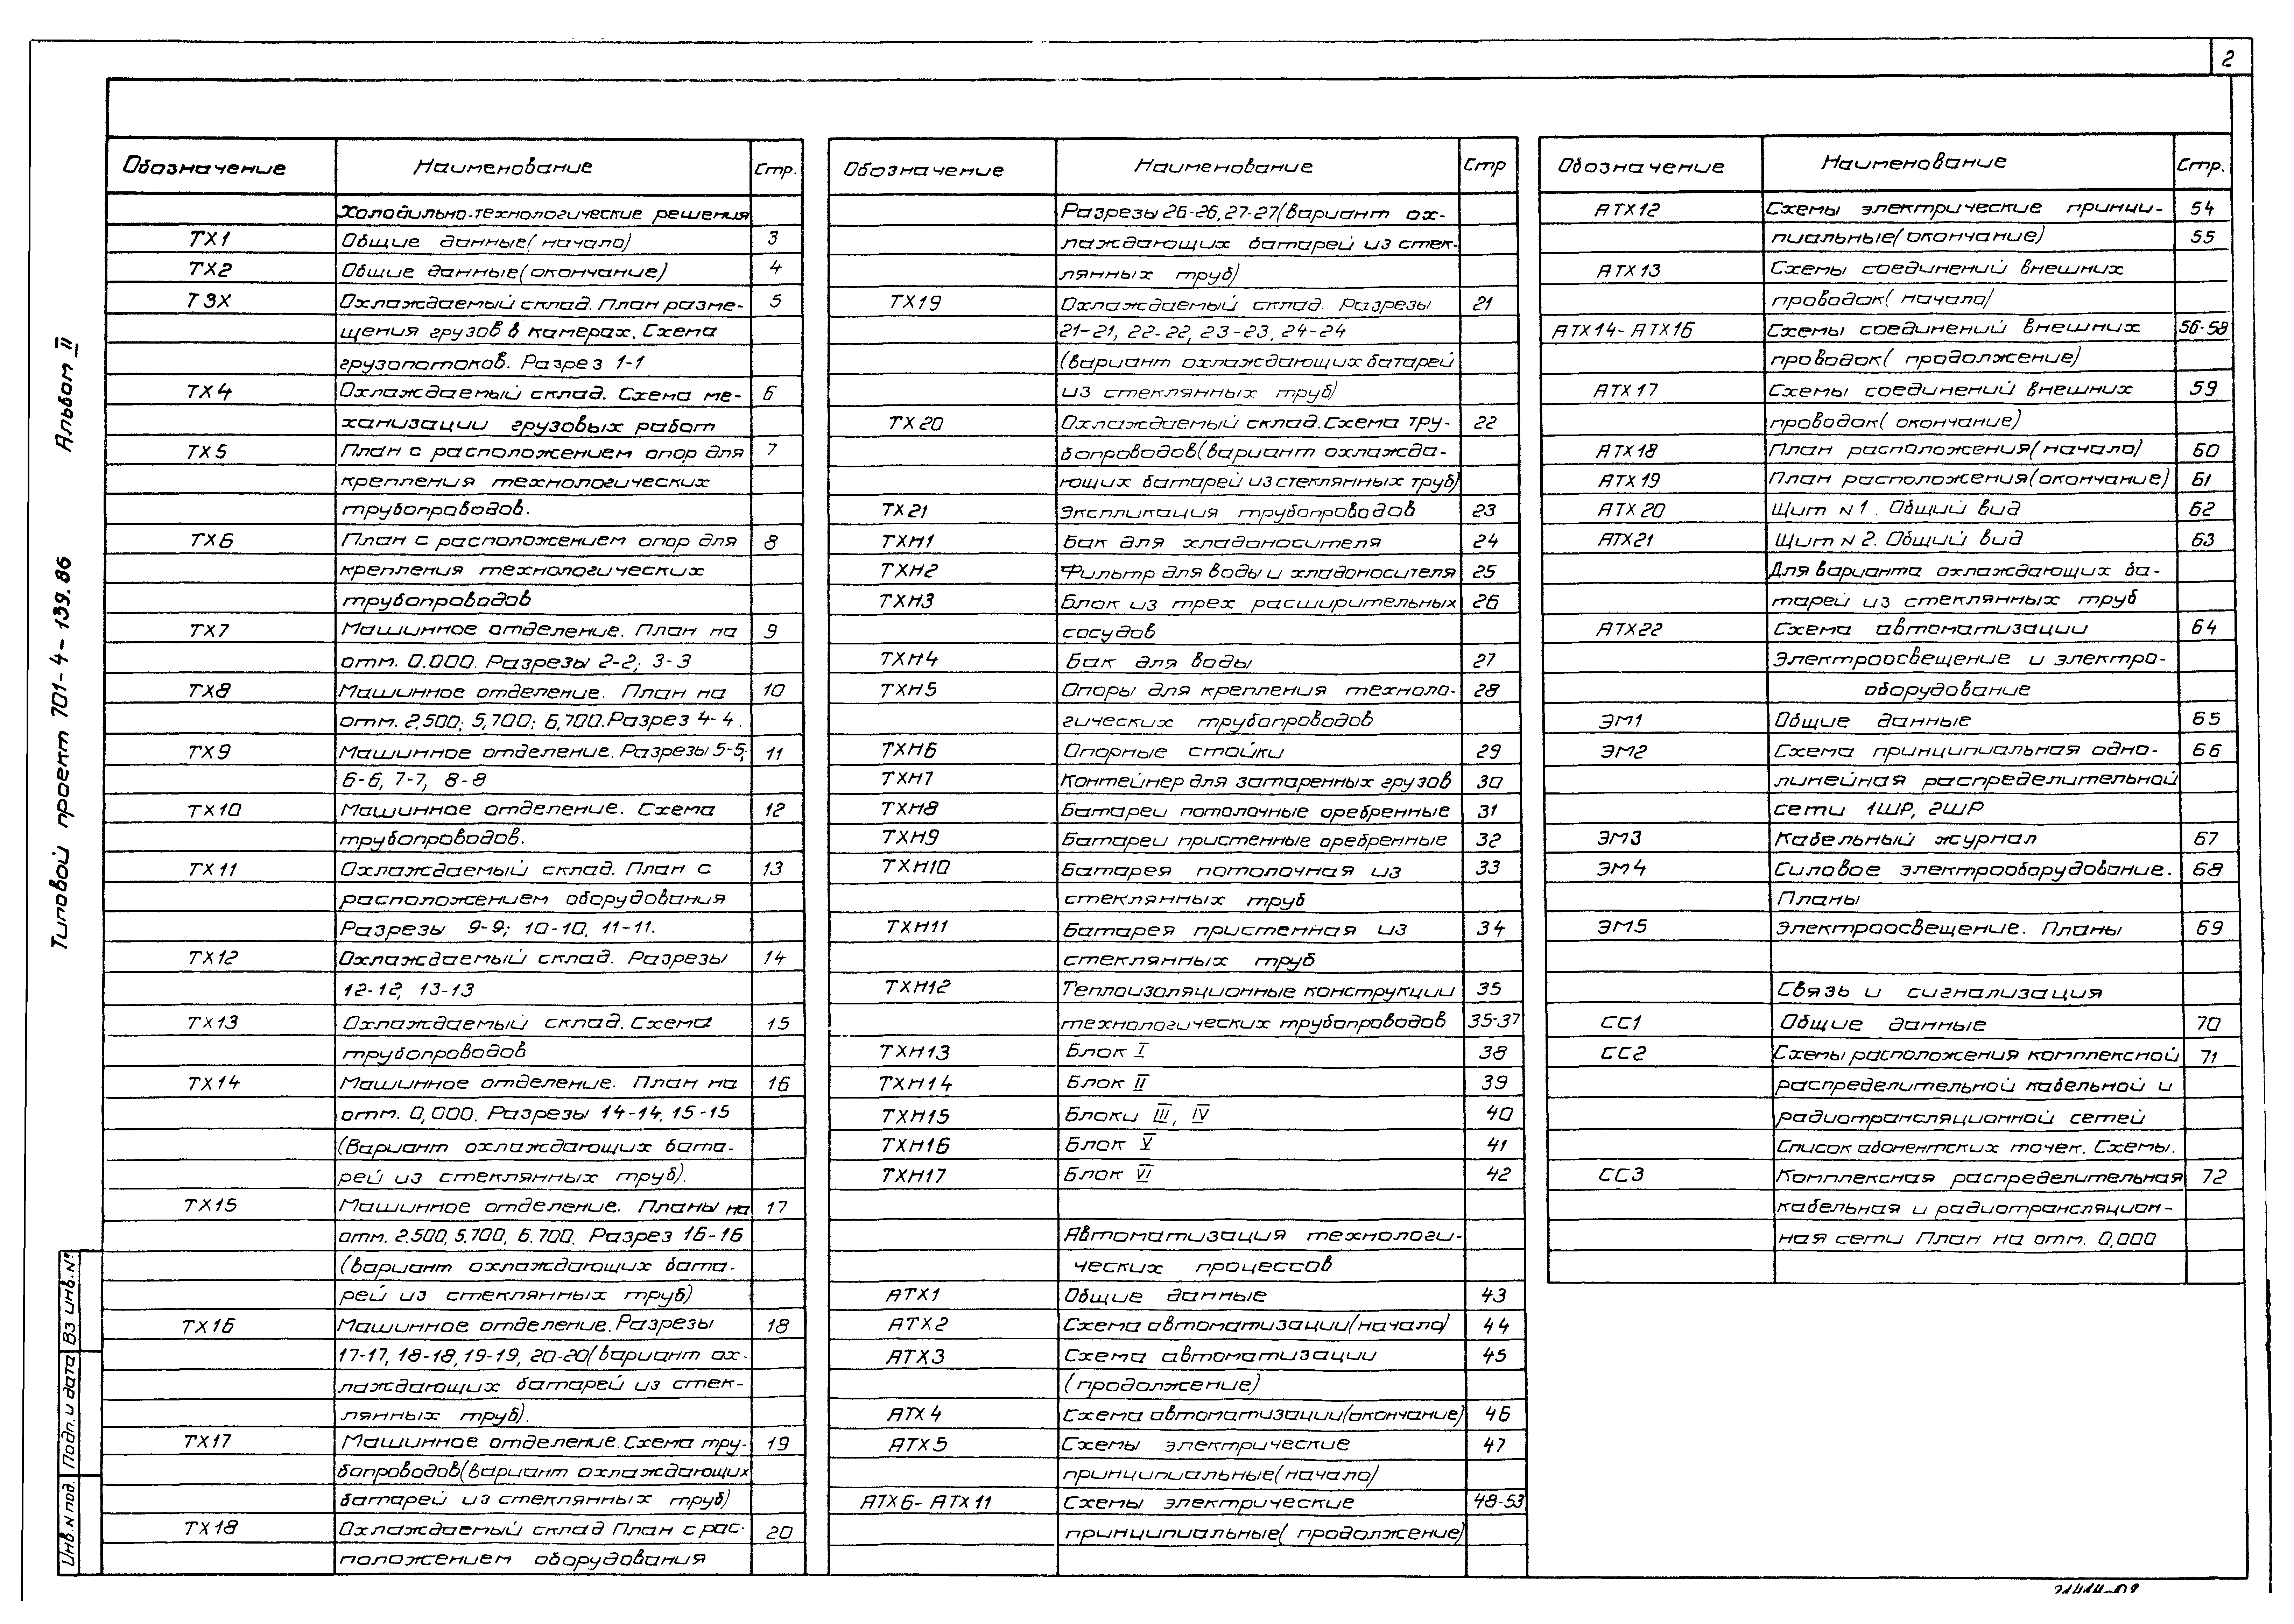 2
Альбом II
Типовой проект 701-4-139.86
Обозначение Наименование Стр.
Холодильно-технологические решения
ТХ1 Общие данные(начало) 3
ТХ2 Общие данные(окончание) 4
ТЗХ Охлаждаемый склад. План разме- 5
щения грузов в камерах. Схема
грузопотоков. Разрез 1-1
ТХ4 Охлаждаемый склад. Схема ме- 6
ханизации грузовых работ
ТХ5 План с расположением опор для 7
крепления технологических
трубопроводов.
ТХ6 План с расположением опор для 8
крепления технологических
трубопроводов
ТХ7 Машинное отделение. План на 9
отм. 0.000. Разрезы 2-2; 3-3
ТХ8 Машинное отделение. План на 10
отм. 2.500; 5,700; 6,700. Разрез 4-4.
ТХ9 Машинное отделение. Разрезы 5-5; 11
6-6, 7-7, 8-8
ТХ10 Машинное отделение. Схема 12
трубопроводов.
ТХ11 Охлаждаемый склад. План с 13
расположением оборудования
Разрезы 9-9; 10-10, 11-11.
ТХ12 Охлаждаемый склад. Разрезы 14
12-12, 13-13
ТХ13 Охлаждаемый склад. Схема 15
трубопроводов
ТХ14 Машинное отделение. План на 16
отм. 0,000. Разрезы 14-14, 15-15
(Вариант охлаждающих бата-
рей из стеклянных труб).
ТХ15 Машинное отделение. Планы на 17
отм. 2.500, 5.700, 6.700. Разрез 16-16
(вариант охлаждающих бата-
рей из стеклянных труб)
ТХ16 Машинное отделение. Разрезы 18
17-17, 18-18, 19-19, 20-20(вариант ох-
лаждающих батарей из стек-
лянных труб).
ТХ17 Машинное отделение. Схема тру- 19
бопроводов(вариант охлаждающих
батарей из стеклянных труб)
ТХ18 Охлаждаемый склад План с рас- 20
положением оборудования
Обозначение Наименование Стр
Разрезы 26-26, 27-27(вариант ох-
лаждающих батарей из стек-
лянных труб)
ТХ19 Охлаждаемый склад. Разрезы 21
21-21, 22-22, 23-23, 24-24
(вариант охлаждающих батарей
из стеклянных труб)
ТХ20 Охлаждаемый склад. Схема тру- 22
бопроводов(вариант охлажда-
ющих батарей из стеклянных труб)
ТХ21 Экспликация трубопроводов 23
ТХН1 Бак для хладоносителя 24
ТХН2 Фильтр для воды и хладоносителя 25
ТХН3 Блок из трех расширительных 26
сосудов
ТХН4 Бак для воды 27
ТХН5 Опоры для крепления техноло- 28
гических трубопроводов
ТХН6 Опорные стойки 29
ТХН7 Контейнер для затаренных грузов 30
ТХН8 Батареи потолочные оребренные 31
ТХН9 Батареи пристенные оребренные 32
ТХН10 Батарея потолочная из 33
стеклянных труб
ТХН11 Батарея пристенная из 34
стеклянных труб
ТХН12 Теплоизоляционные конструкции 35
технологических трубопроводов 35-37
ТХН13 Блок I 38
ТХН14 Блок II 39
ТХН15 Блоки III, IV 40
ТХН16 Блок V 41
ТХН17 Блок VI 42
Автоматизация технологи-
ческих процессов
АТХ1 Общие данные 43
АТХ2 Схема автоматизации(начало) 44
АТХ3 Схема автоматизации 45
(продолжение)
АТХ4 Схема автоматизации(окончание) 46
АТХ5 Схемы электрические 47
принципиальные(начало)
АТХ6-АТХ11 Схемы электрические 48-53
принципиальные(продолжение)
Обозначение Наименование Стр.
АТХ12 Схемы электрические принци- 54
пиальные(окончание) 55
АТХ13 Схемы соединений внешних
проводок(начало)
АТХ14-АТХ16 Схемы соединений внешних 56-58
проводок(продолжение)
АТХ17 Схемы соединений внешних 59
проводок(окончание)
АТХ18 План расположения(начало) 60
АТХ19 План расположения(окончание) 61
АТХ20 Щит N1. Общий вид 62
АТХ21 Щит N2. Общий вид 63
Для варианта охлаждающих ба-
тарей из стеклянных труб
АТХ22 Схема автоматизации 64
Электроосвещение и электро-
оборудование
ЭМ1 Общие данные 65
ЭМ2 Схема принципиальная одно- 66
линейная распределительной
сети 1ШР, 2ШР
ЭМ3 Кабельный журнал 67
ЭМ4 Силовое электрооборудование. 68
Планы
ЭМ5 Электроосвещение. Планы 69
Связь и сигнализация
СС1 Общие данные 70
СС2 Схемы расположения комплексной 71
распределительной кабельной и
радиотрансляционной сетей
Список абонентских точек. Схемы.
СС3 Комплексная распределительная 72
кабельная и радиотрансляцион-
ная сети План на отм. 0,000
Инв. N под. Подп. и дата Вз инв. №